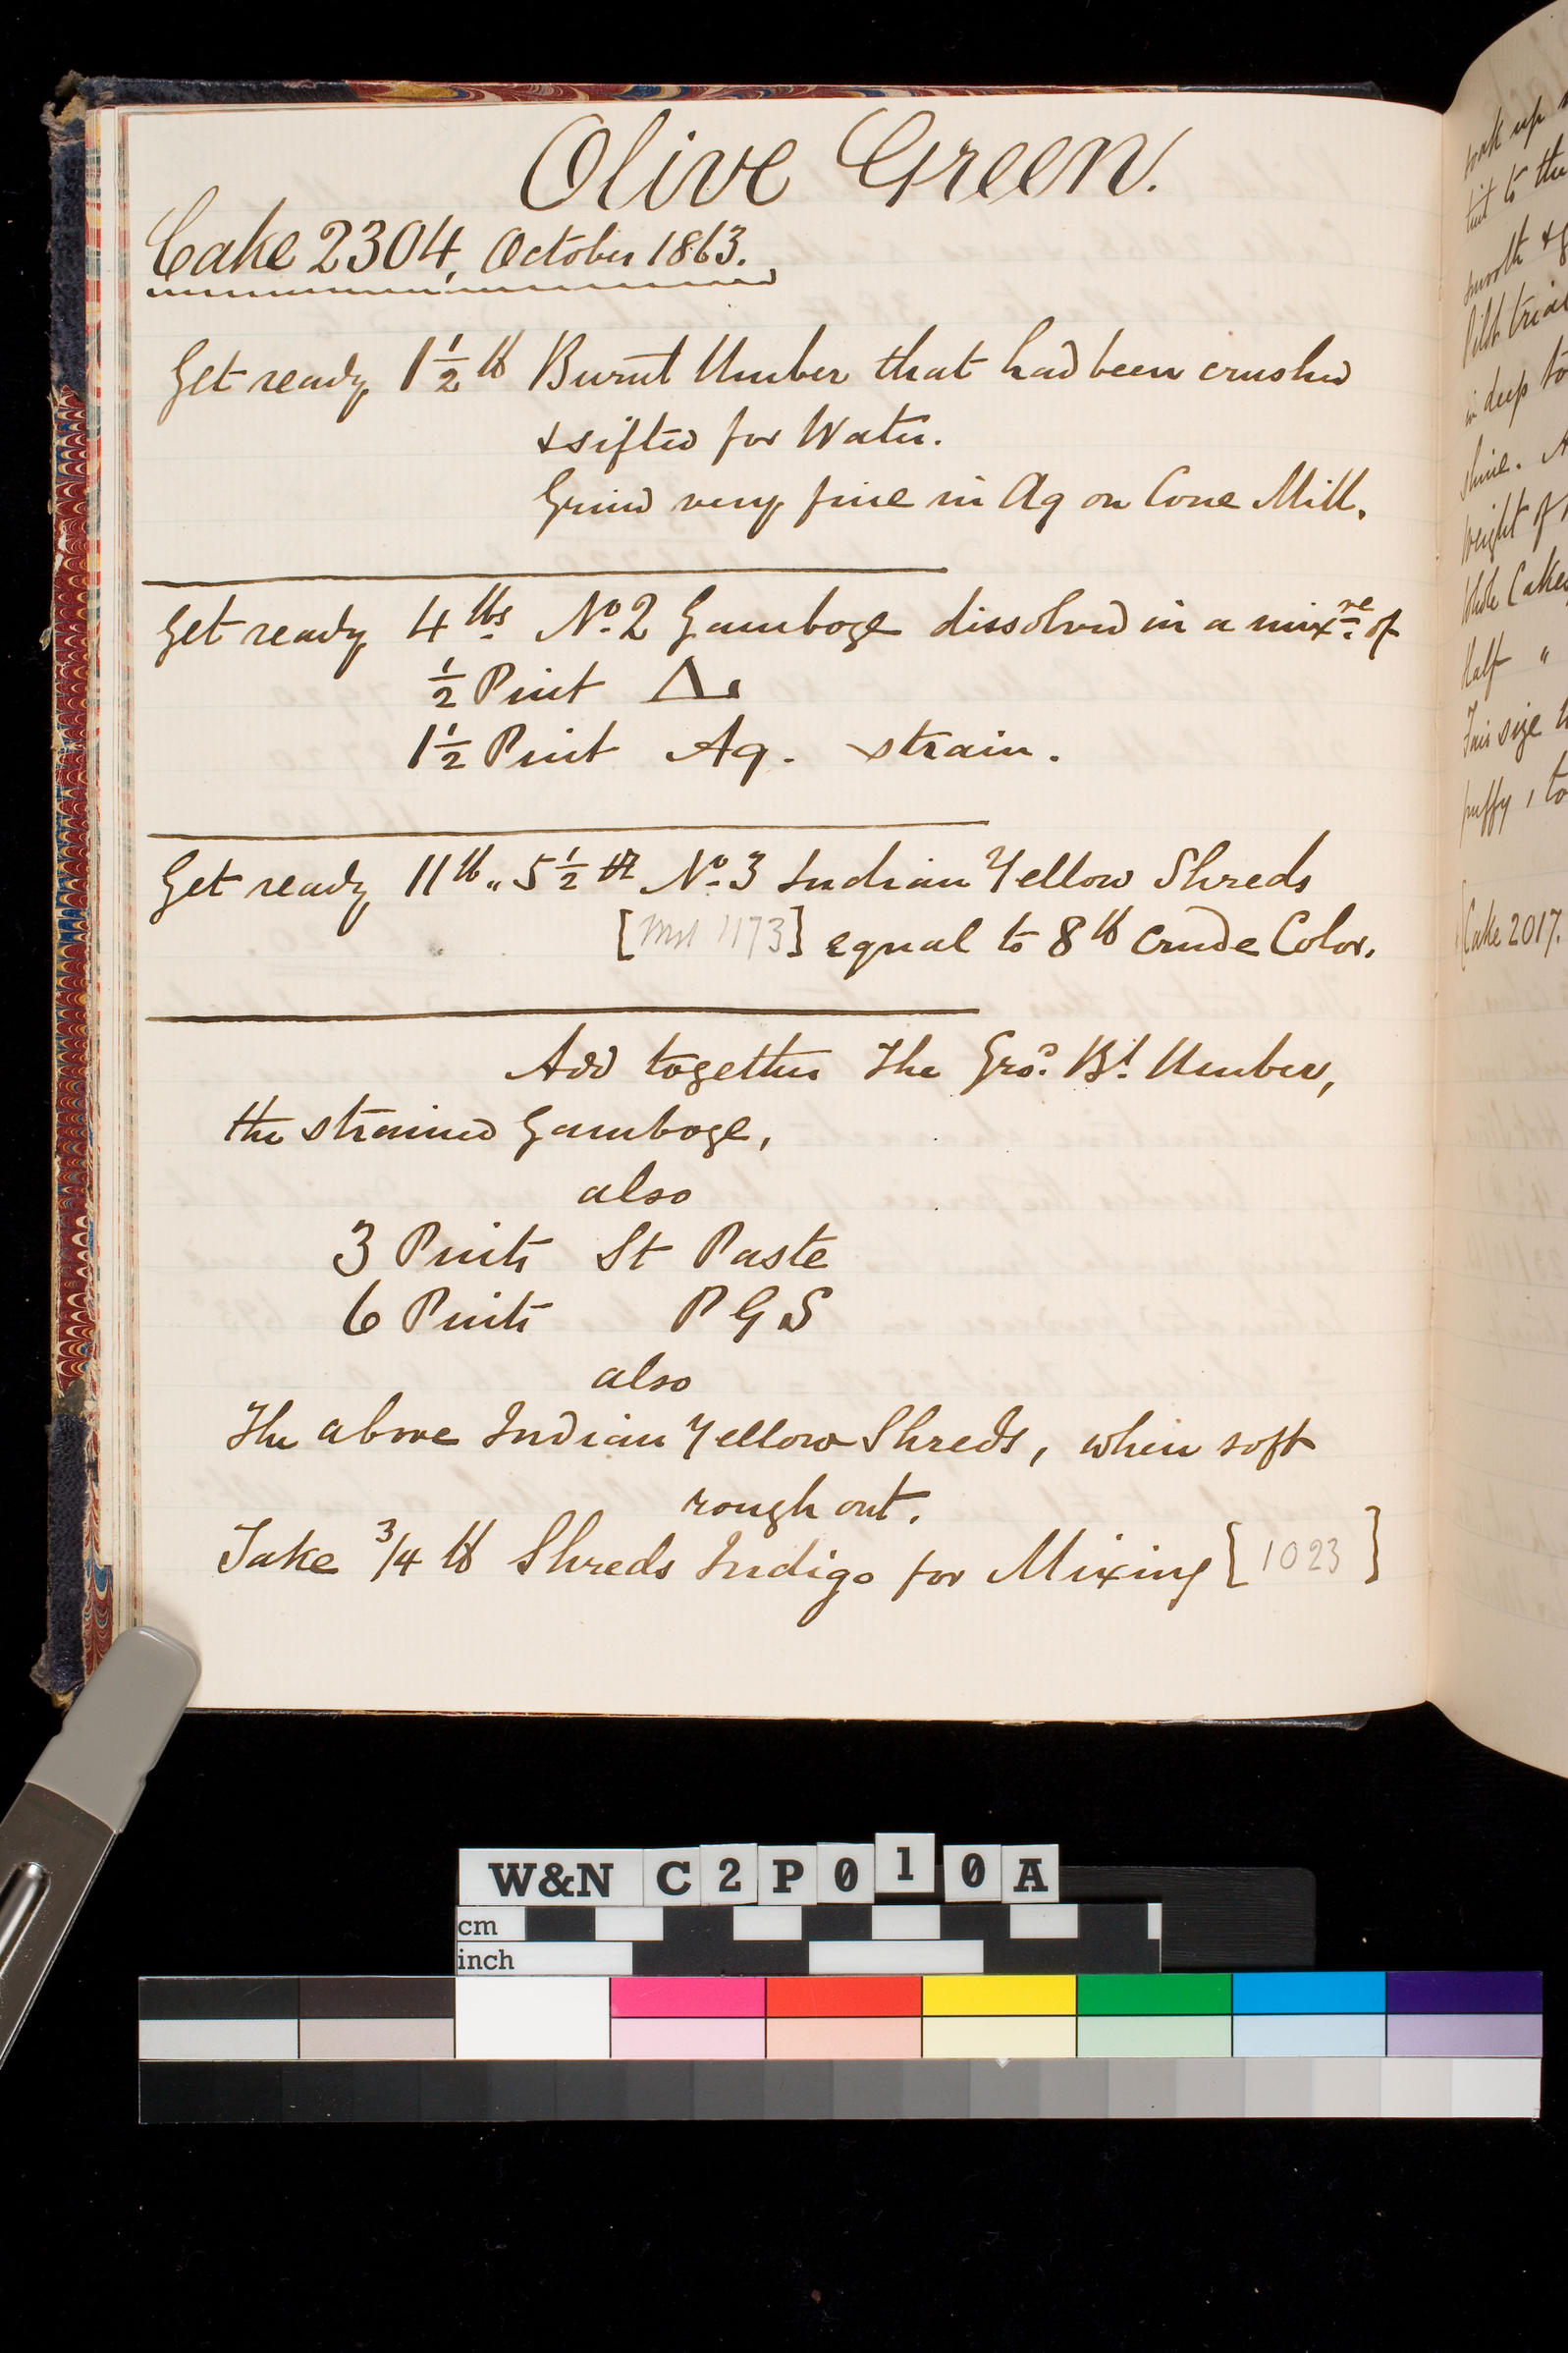 Olive Green.
Cake 2304, October 1863.
Get ready 1½ lb Burnt Umber that had been crushed
& sifted for Water.
Grind very fine in Aq on Cone Mill.
Get ready 4 lbs No. 2 Gamboge dissolved in a mixre. of
½ Pint Δ.
1½ Pint Aq. strain.
Get ready 11 lb „ 5½ No. 3 Indian Yellow Shreds
[ 1173] equal to 8 lb Crude Color.
Add together The Grd. Bt. Umber,
the strained Gamboge,
also
3 Pints St Paste
6 Pints P G S
also
The above Indian Yellow Shreds, when soft
rough out.
Take 3/4 lb Shreds Indigo for Mixing [1023]
soak up
tint to the
smooth &
Pilot trial
in deep to
shine. A
Weight of
Whole Cake
Half "
This size
puffy, to
[Cake 2017.
W&N C2P010A
cm
inch